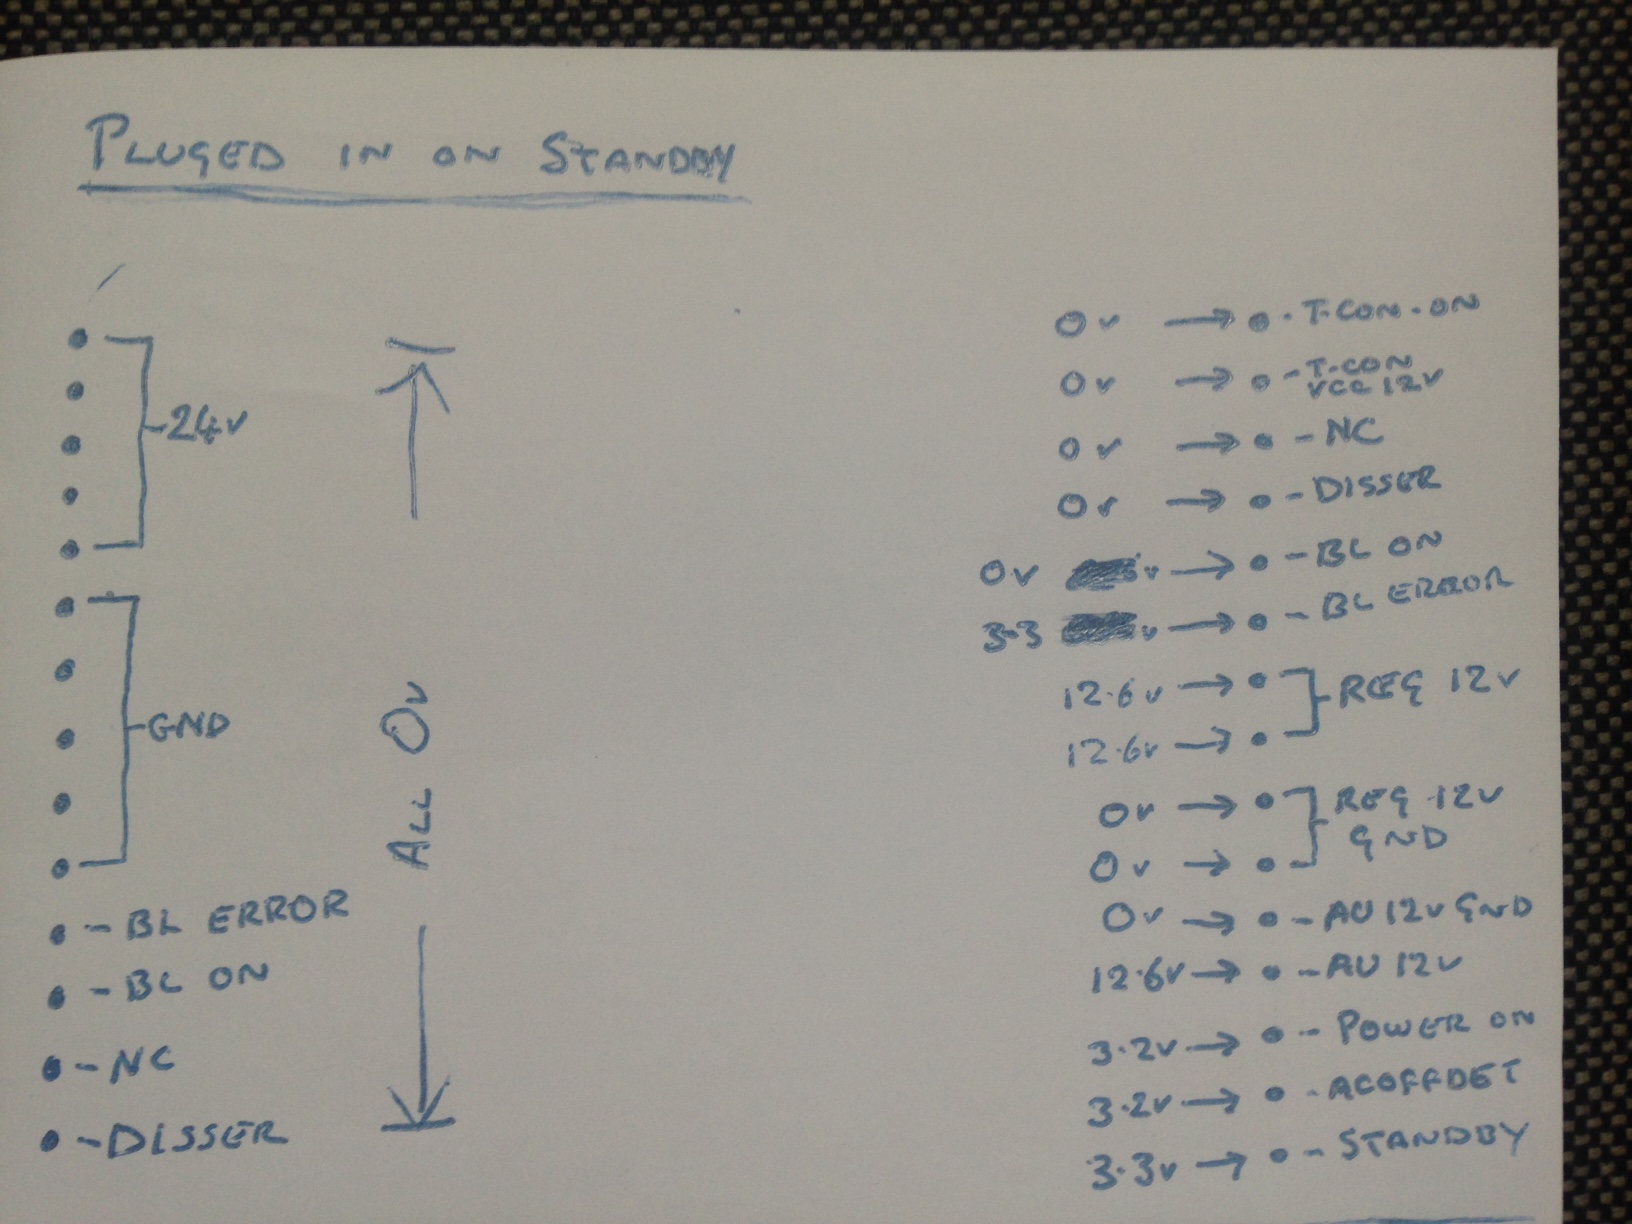 PLUGED IN ON STANDBY
24v
GND
BL ERROR
BL ON
NC
DISSER
ALL 0v
0v → • - T-CON-ON
0v → • - T-CON VCC 12V
0v → • - NC
0v → • - DISSER
0v v → • - BL ON
3.3 v → • - BL ERROR
12.6v → • REG 12v
12.6v → •
0v → • REG 12v
0v → • GND
0v → • - AU 12v GND
12.6v → • - AU 12v
3.2v → • - POWER ON
3.2v → • - ACOFFDET
3.3v → • - STANDBY